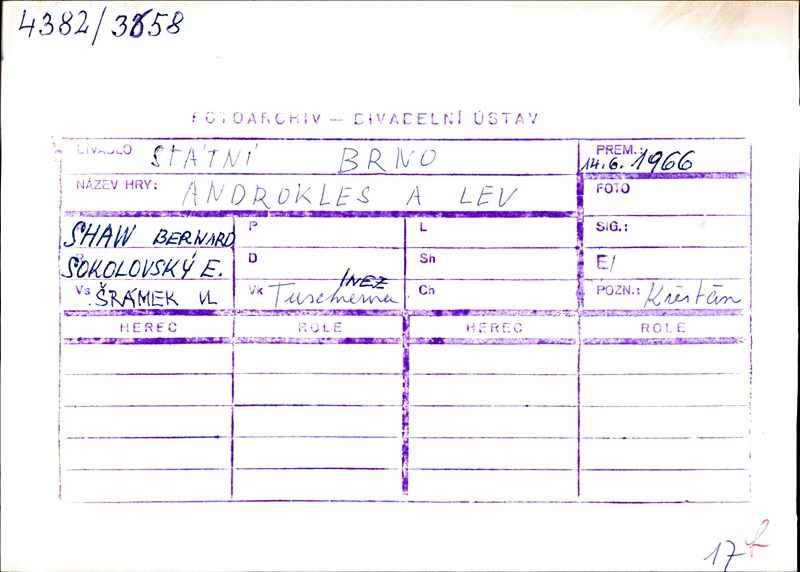 4382/3858
FOTOARCHIV — DIVADELNÍ ÚSTAV
DIVADLO STÁTNÍ BRNO
PREM.: 14.6.1966
NÁZEV HRY: ANDROKLES A LEV
FOTO
SHAW BERNARD P L SIG.:
SOKOLOVSKÝ E. D Sh E/
Vs ŠRÁMEK VL Vk INEZ Tuschnerová Ch POZN.: Křesťan
HEREC ROLE HEREC ROLE
17